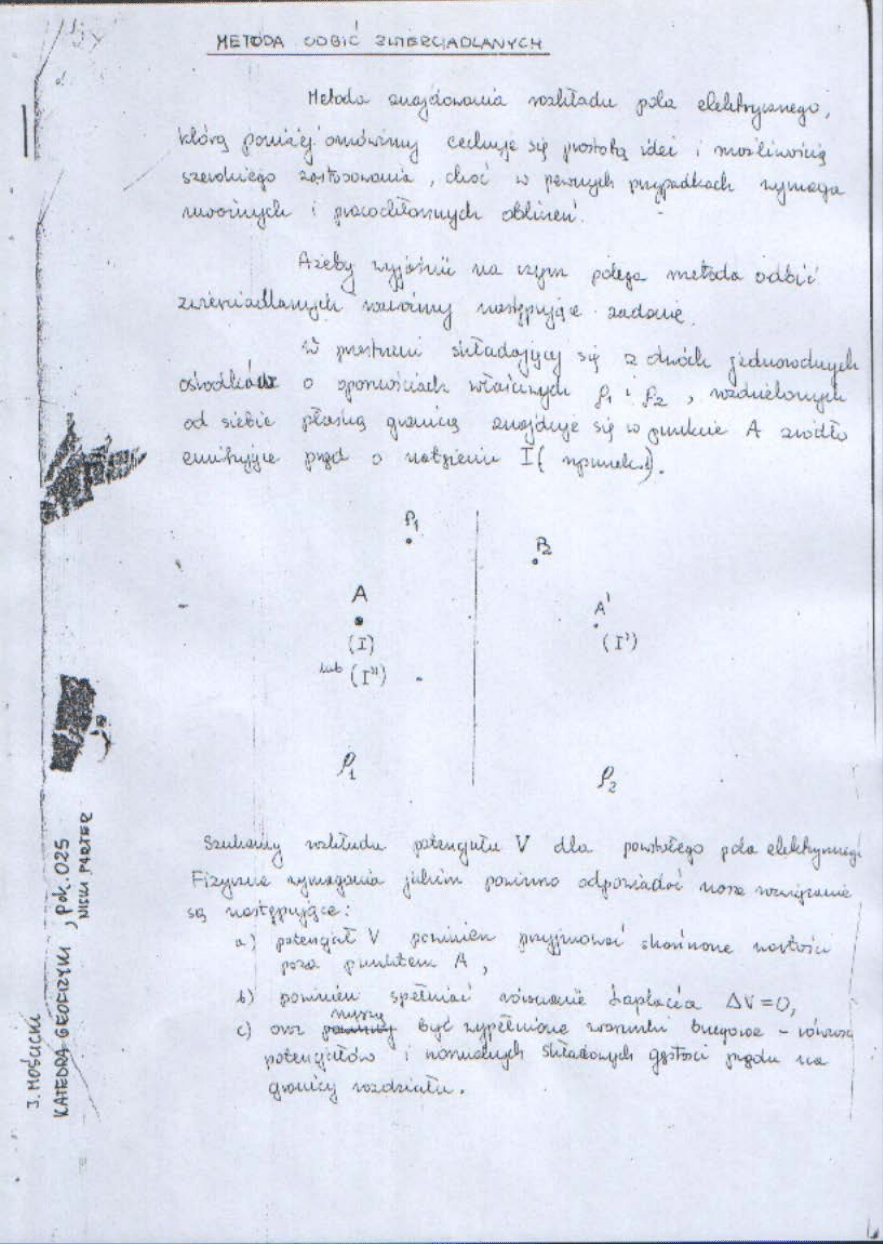 METODA ODBIĆ ZWIERCIADLANYCH
Metoda znajdowania rozkładu pola elektrycznego,
którą poniżej omówimy cechuje się prostotą idei i możliwością
szerokiego zastosowania, choć w pewnych przypadkach wymaga
i pracochłonnych obliczeń.
Ażeby wyjaśnić na czym polega metoda odbić
zwierciadlanych rozważmy następujące zadanie.
W przestrzeni składającej się z dwóch jednorodnych
ośrodków o opornościach właściwych ρ₁ i ρ₂, rozdzielonych
od siebie płaską granicą znajduje się w punkcie A źródło
emitujące prąd o natężeniu I
P₁
P₂
A
A'
(I)
(I')
lub (I'')
ρ₁
ρ₂
Szukamy rozkładu potencjału V dla powstałego pola elektrycznego
Fizyczne wymagania jakim powinno odpowiadać nasze rozwiązanie
są następujące:
a) potencjał V powinien przyjmować skończone wartości
poza punktem A,
b) powinien spełniać równanie Laplace'a ΔV=0,
muszą
c) oraz powinny być wypełnione warunki brzegowe – równość
potencjałów i normalnych składowych gęstości prądu na
granicy rozdziału.
J. MOŚCICKI
KATEDRA GEOFIZYKI, pok. 025
NISKI PARTER